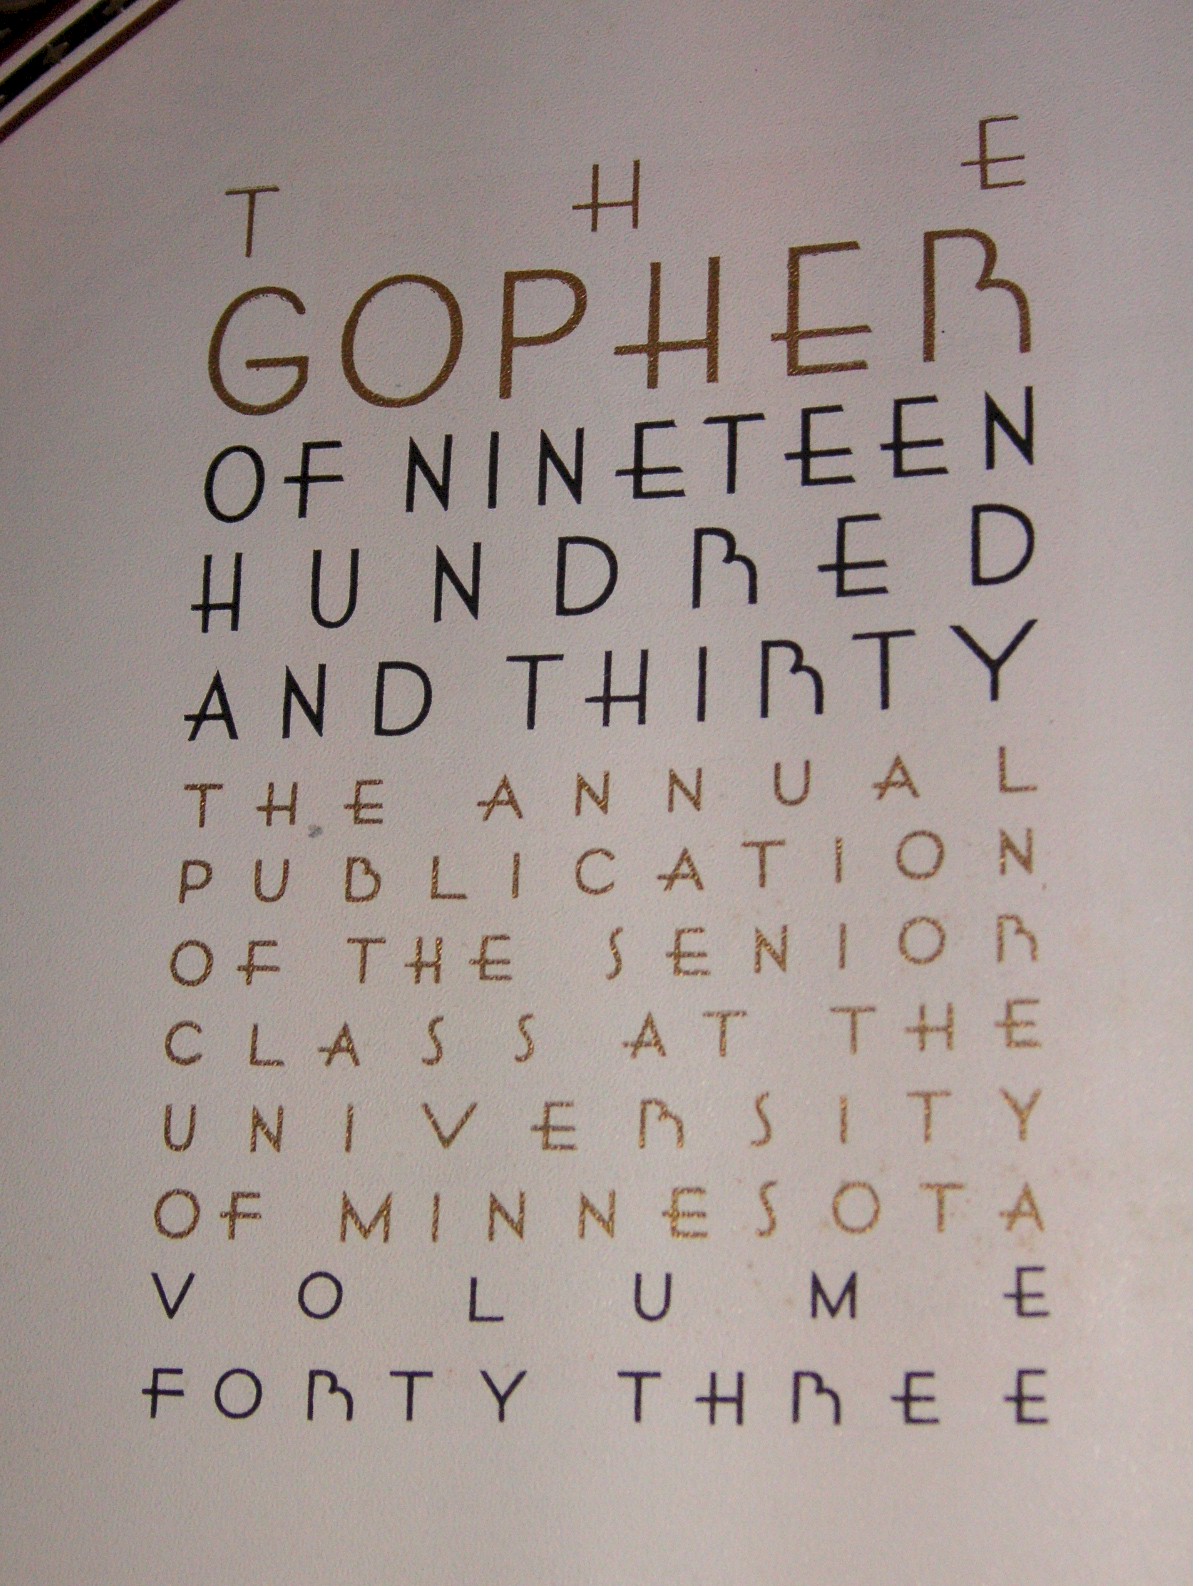 THE
GOPHER
OF NINETEEN
HUNDRED
AND THIRTY
THE ANNUAL
PUBLICATION
OF THE SENIOR
CLASS AT THE
UNIVERSITY
OF MINNESOTA
VOLUME
FORTY THREE